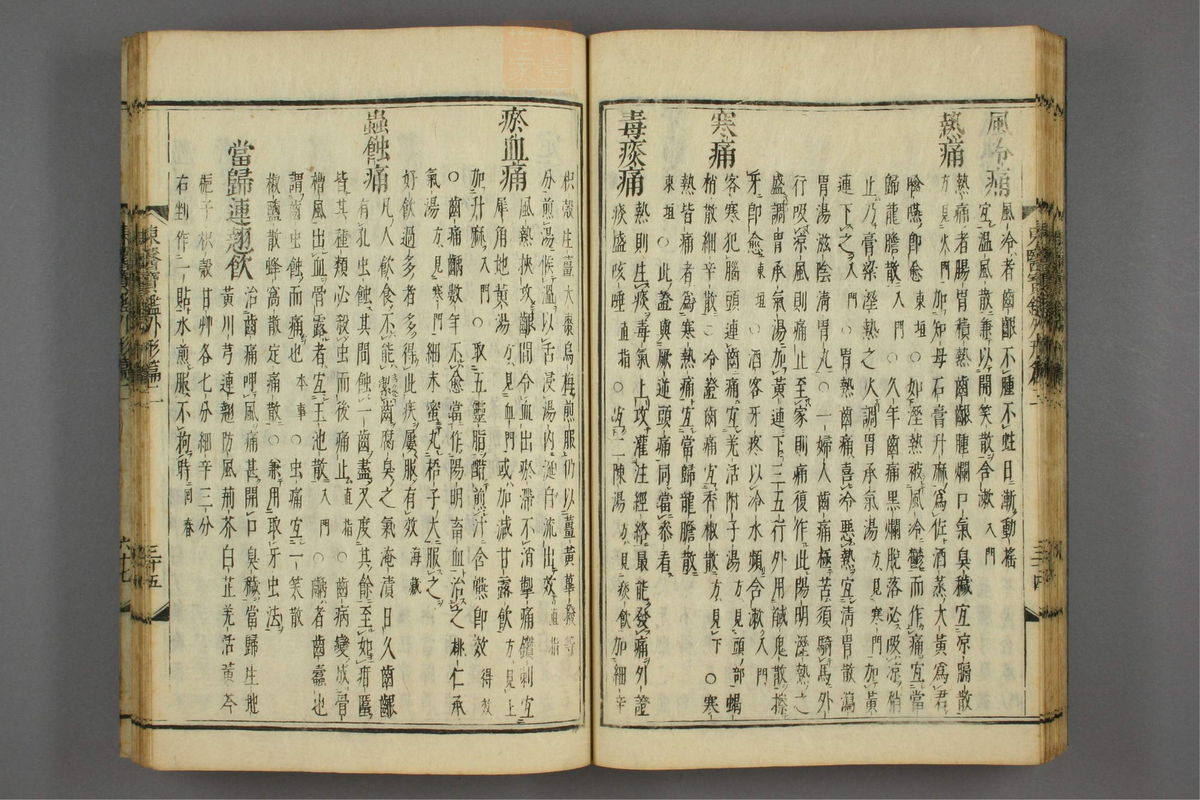 風冷痛
風冷者齒齦不腫不蛀日漸動搖
宜溫風散兼以開笑散含漱入門
熱痛
熱痛者腸胃積熱齒齦腫爛口氣臭穢宜凉膈散
方見火門加知母石膏升麻爲佐酒蒸大黃爲君
噙嚥卽愈東垣○如溼熱被風冷鬱而作痛宜當
歸龍膽散入門○久年齒痛黑爛脫落必吸凉稍
止乃膏粱溼熱之火調胃承氣湯方見寒門加黃
連下之入門○胃熱齒痛喜冷惡熱宜淸胃散瀉
胃湯滋陰淸胃丸○一婦人齒痛極苦須騎馬外
行吸凉風則痛止至家則痛復作此陽明溼熱之
盛調胃承氣湯加黃連下三五行外用鹹鬼散擦
牙卽愈東垣○酒客牙疼以冷水頻含漱入門
寒痛
客寒犯腦頭連齒痛宜羌活附子湯方見頭部蝎
梢散細辛散○冷證齒痛宜香椒散方見下○寒
熱皆痛者爲寒熱痛宜當歸龍膽散
東垣○此證與厥逆頭痛同當參看
毒痰痛
熱則生痰毒氣上攻灌注經絡最能發痛外證
痰盛咳唾直指○宜二陳湯方見痰飮加細辛
枳殼生薑大棗烏梅煎服仍以薑黃蓽撥等
分煎湯候溫以舌浸湯內涎自流出效直指
瘀血痛
風熱挾攻齦間令血出瘀滯不消攣痛鑽刺宜
犀角地黃湯方見血門或加減甘露飮方見上
加升麻入門○取五靈脂醋煎汁含嚥卽效得效
○齒痛齲數年不愈當作陽明畜血治之桃仁承
氣湯方見寒門細末蜜丸梧子大服之
好飮過多者多得此疾屢服有效海藏
蟲蝕痛
凡人飮食不能潔齒腐臭之氣淹漬日久齒齦
有孔虫蝕其間蝕一齒盡又度其餘至如疳䘌
皆其種類必殺虫而後痛止直指○齒病變成骨
槽風出血骨露者宜玉池散入門○齲者齒蠹也
謂齒虫蝕而痛也本事○虫痛宜一笑散
椒鹽散蜂窩散定痛散○兼用取牙虫法
當歸連翹飮
治齒痛呷風痛甚開口臭穢當歸生地
黃川芎連翹防風荊芥白芷羌活黃芩
梔子枳殼甘艸各七分細辛三分
右剉作一貼水煎服不拘時回春